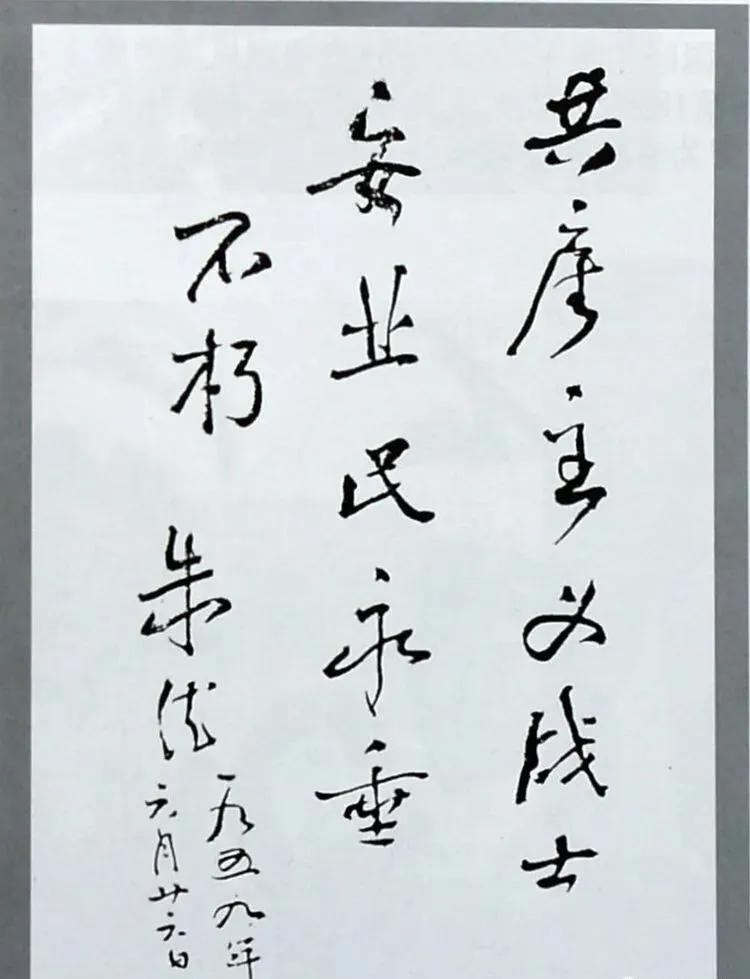 共産主义战士
安业民永垂
不朽
朱德
一九五九年
六月廿六日